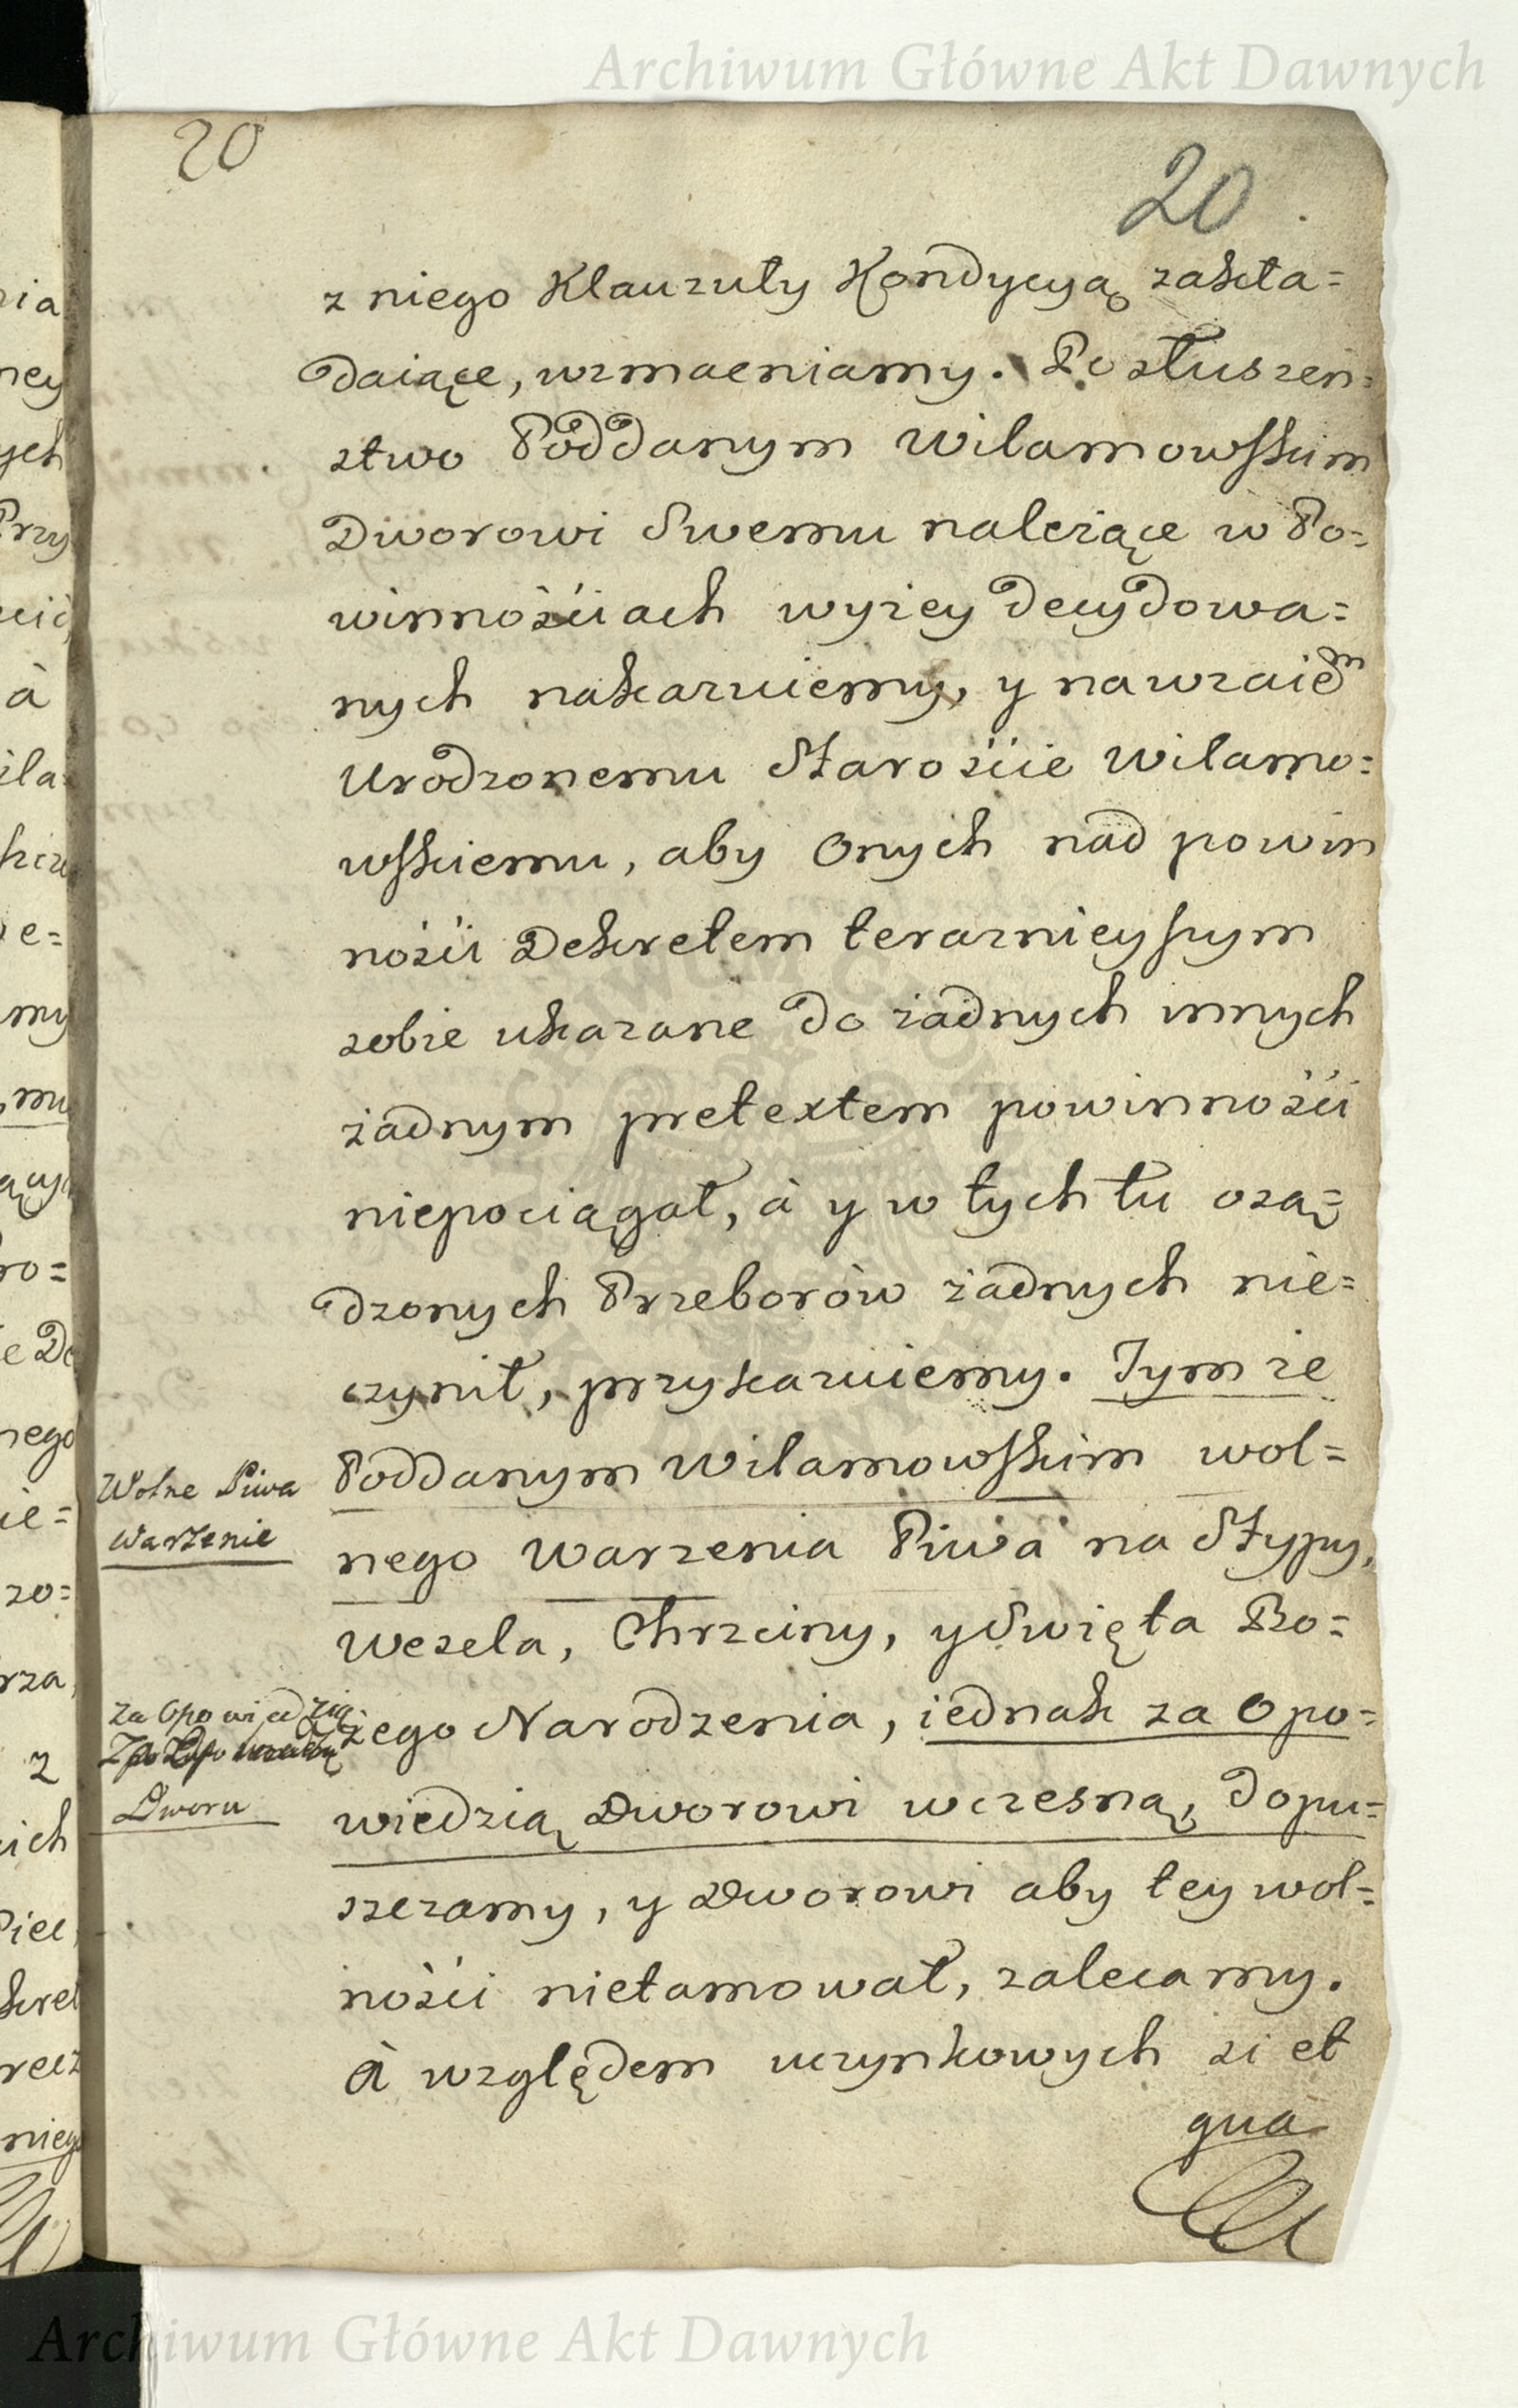 Archiwum Główne Akt Dawnych
20
20
z niego Klauzuły Kondycyą zakła=
daiące, wzmacniamy. Posłuszeń=
stwo Poddanym Wilamowskim
Dworowi Swemu należące w Po=
winnościach wyżey decydowa=
nych nakazuiemy, y nawzaiem
Urodzonemu Starościie Wilamo=
wskiemu, aby Onych nad powin
ności Dekretem teraznieyszym
sobie ukazane do żadnych innych
żadnym pretextem powinności
niepociągał, à y w tych tu osą=
dzonych Przeborów żadnych nie=
czynił, przykazuiemy. Tym że
Poddanym Wilamowskim wol=
Wolne Piwa
warzenie
nego warzenia Piwa na Stypy,
Wesela, Chrzciny, y Swięta Bo=
za Opowiedzią
Dworu
żego Narodzenia, iednak za Opo=
wiedzią Dworowi wczesną, dopu=
szczamy, y Dworowi aby tey wol=
ności nietamował, zalecamy.
à względem uczynkowych si et
qua
nia
ney
ych
Przy
à
e=
my
mu
ro=
nego
ie=
zo=
rza
z
ich
niego
Archiwum Główne Akt Dawnych